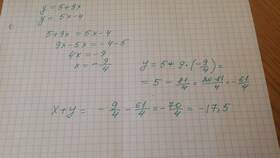 y = 5+9x
y = 5x-4
5+9x = 5x-4
9x-5x = -4-5
4x = -9
x = -9/4
y = 5+9·(-9/4) =
= 5 - 81/4 = (20-81)/4 = -61/4
x+y = -9/4 - 61/4 = -70/4 = -17,5